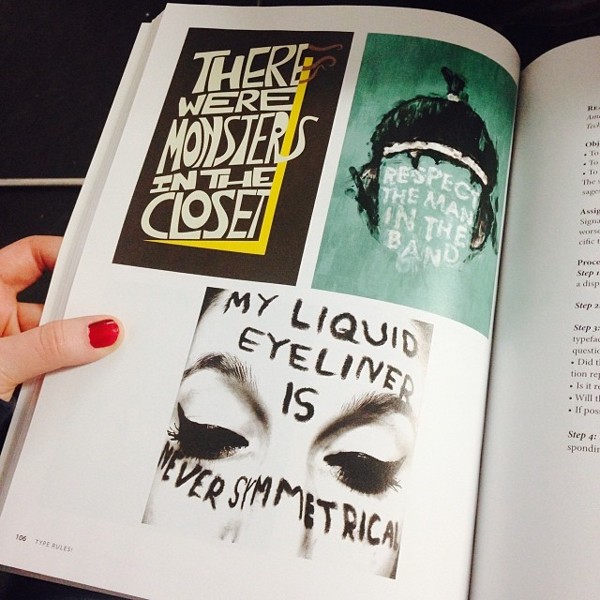 THERE
WERE
MONSTERS
IN THE
CLOSET
RESPECT
THE MAN
IN THE
BAND
MY LIQUID
EYELINER
IS
NEVER SYMMETRICAL
106 TYPE RULES!
Obj
• To
• To
• To
The s
sages
Assig
Signa
worse
cific t
Proce
Step 1
a disp
Step 2
Step 3:
typefac
questio
• Did th
tion rep
• Is it r
• Will th
• If poss
Step 4:
spondin